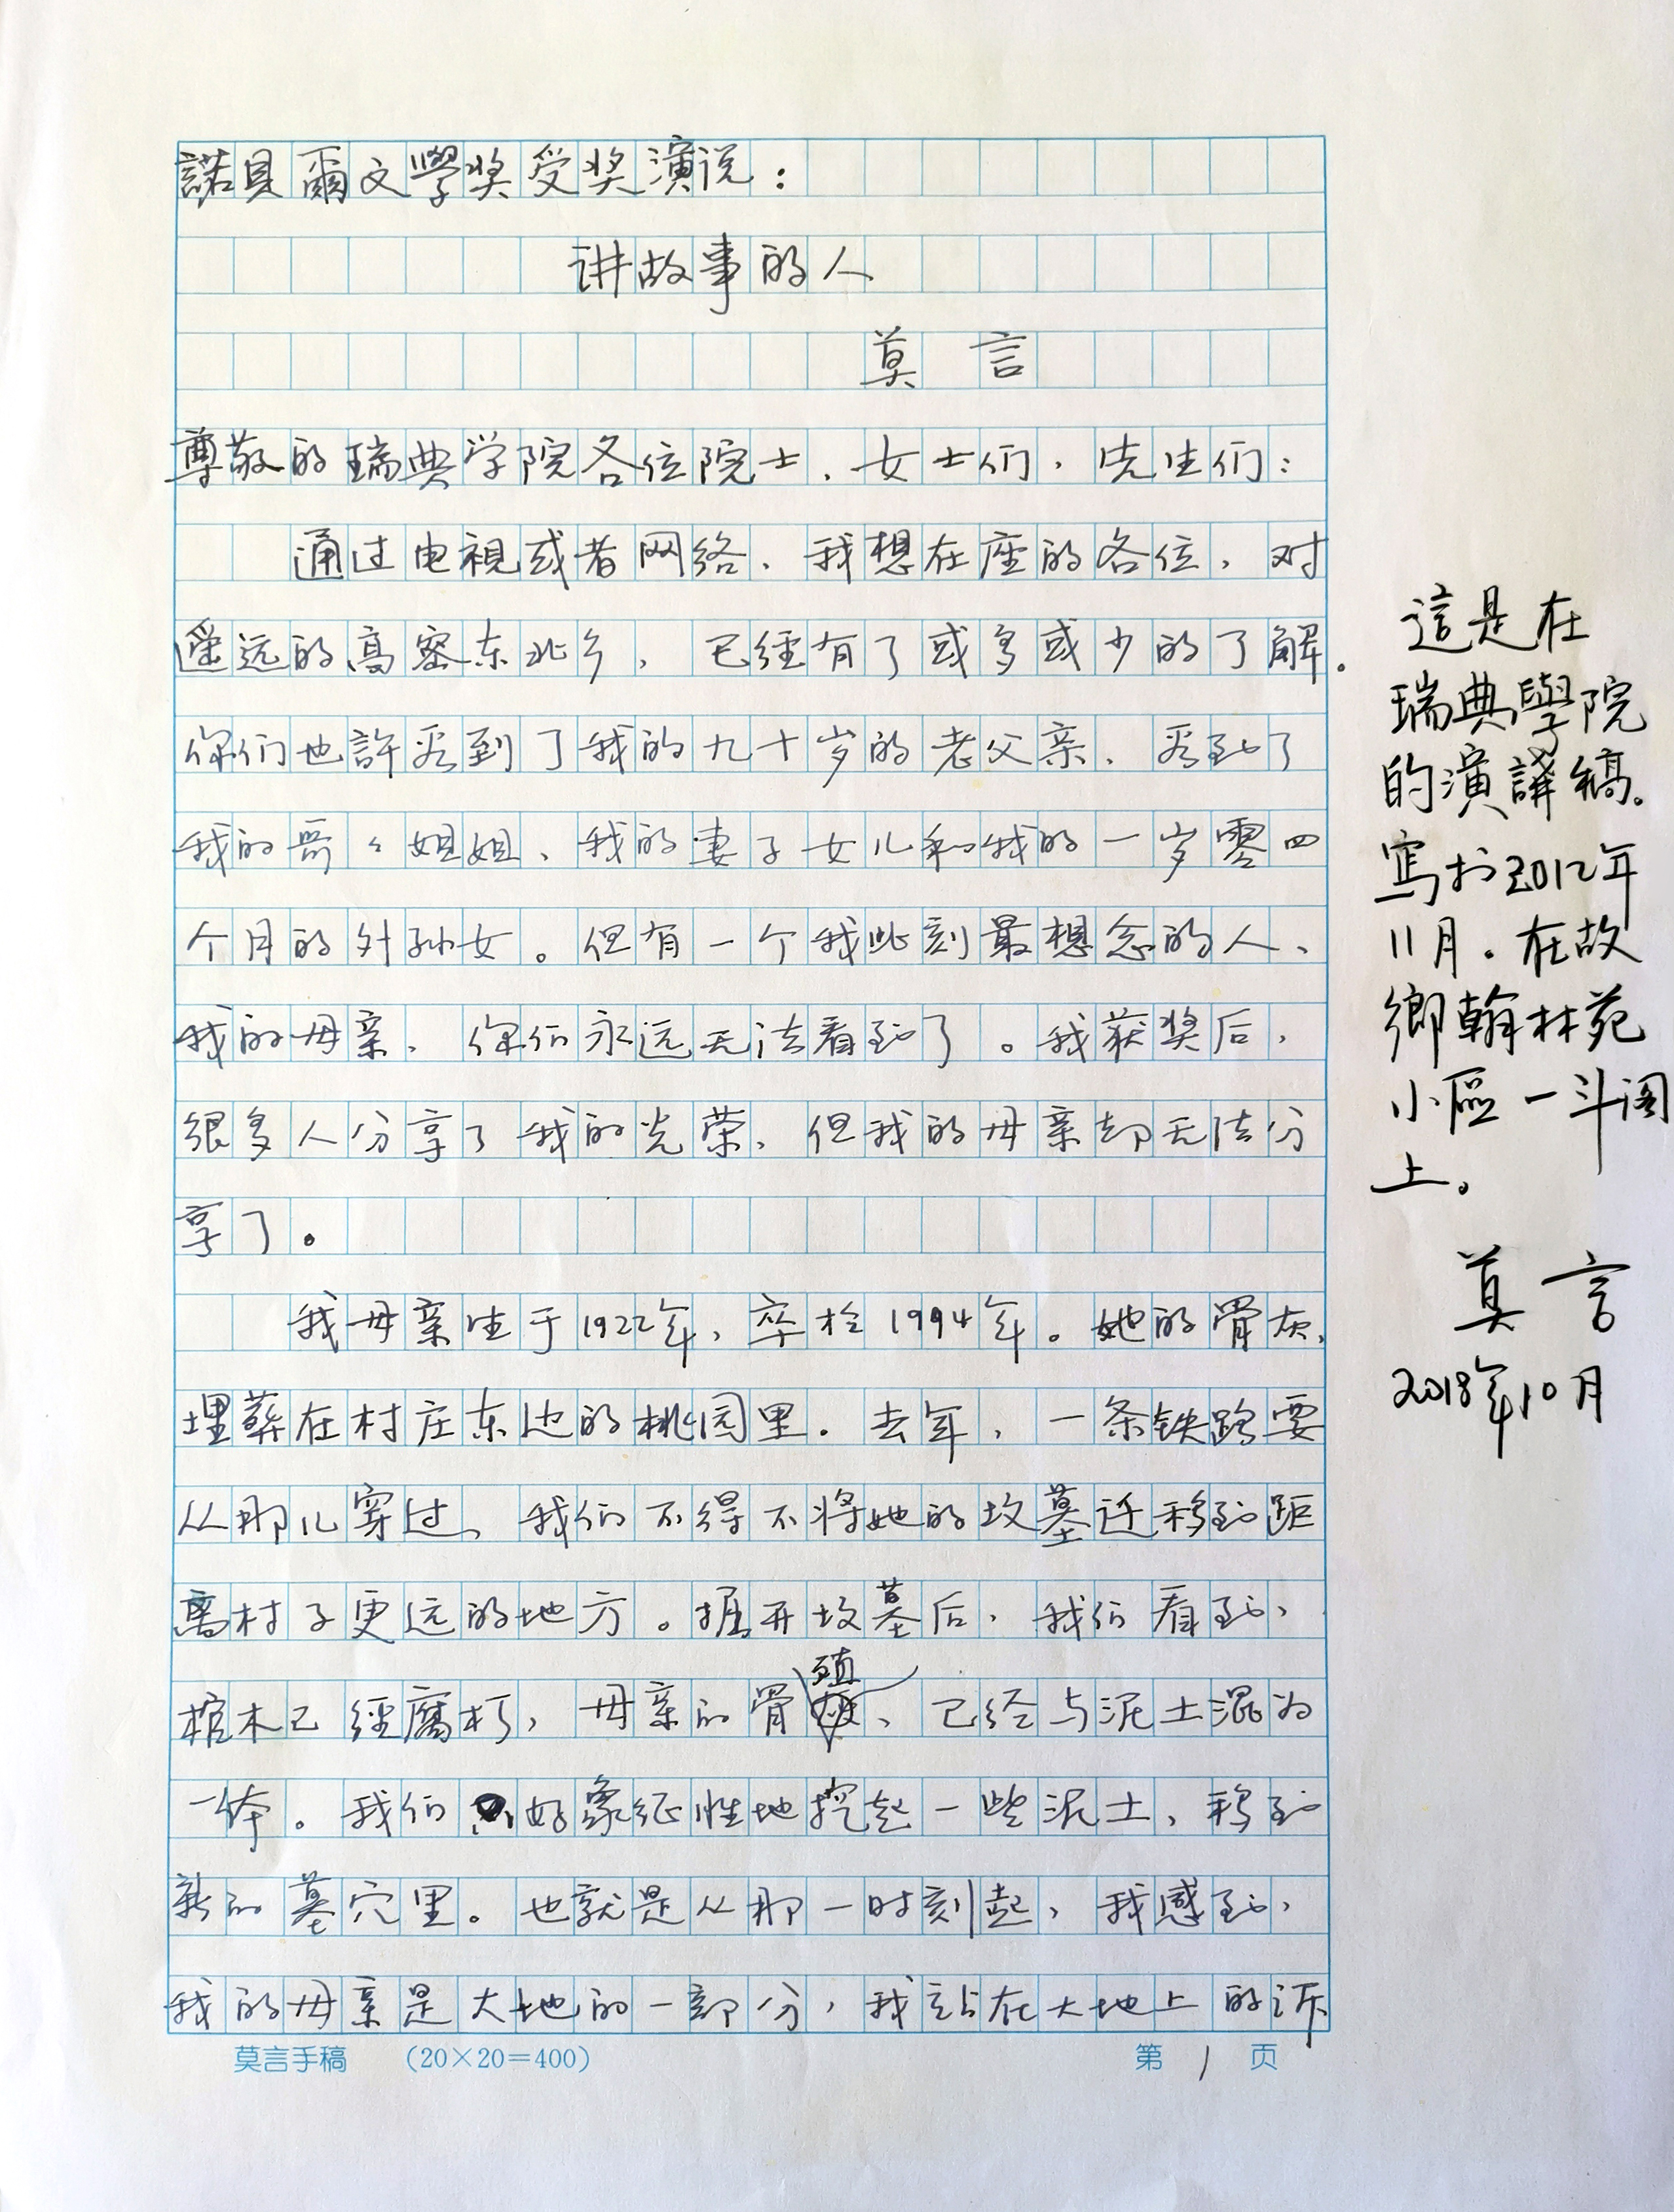 諾貝爾文學奖受奖演说：
讲故事的人
莫言
尊敬的瑞典学院各位院士，女士们，先生们：
通过电視或者网络，我想在座的各位，对
遥远的高密东北乡，已經有了或多或少的了解。
你们也許看到了我的九十岁的老父亲，看到了
我的哥々姐姐、我的妻子女儿和我的一岁零四
个月的外孙女。但有一个我此刻最想念的人，
我的母亲，你们永远无法看到了。我获奖后，
很多人分享了我的光荣，但我的母亲却无法分
享了。
我母亲生于1922年，卒於1994年。她的骨灰，
埋葬在村庄东边的桃园里。去年，一条铁路要
从那儿穿过，我们不得不将她的坟墓迁移到距
离村子更远的地方。掘开坟墓后，我们看到，
棺木已經腐朽，母亲的骨殖，已经与泥土混为
一体。我们好象征性地挖起一些泥土，移到
新的墓穴里。也就是从那一时刻起，我感到，
我的母亲是大地的一部分，我站在大地上的诉
莫言手稿 （20×20=400） 第1页
這是在
瑞典學院
的演講稿。
寫於2012年
11月。在故
鄉翰林苑
小區一斗阁
上。
莫言
2018年10月